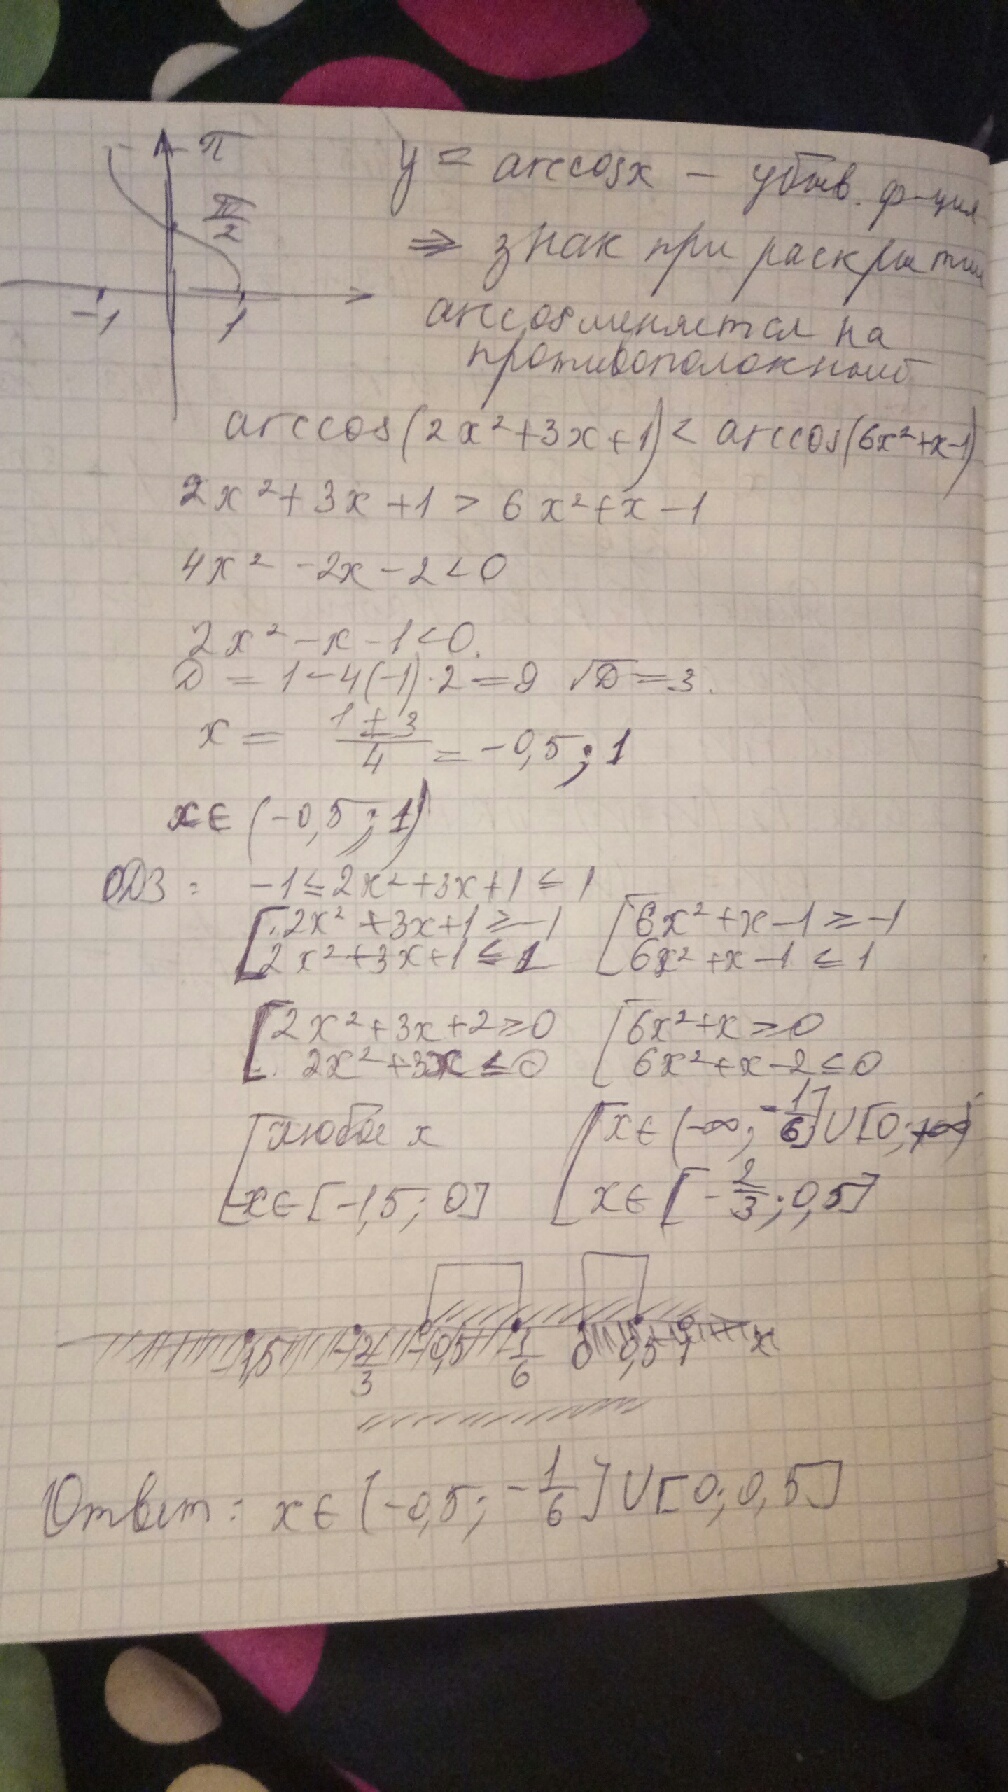 π
π/2
-1
1
y = arccosx - убыв. ф-ция
⇒ знак при раскрытии
arccos меняется на
противоположный
arccos(2x²+3x+1) < arccos(6x²+x-1)
2x²+3x+1 > 6x²+x-1
4x²-2x-2<0
2x²-x-1<0.
D = 1-4(-1)·2=9 √D=3.
x = (1±3)/4 = -0,5; 1
x∈(-0,5; 1)
ОДЗ: -1≤2x²+3x+1≤1
[2x²+3x+1≥-1 [6x²+x-1≥-1
2x²+3x+1≤1 6x²+x-1≤1
[2x²+3x+2≥0 [6x²+x≥0
2x²+3x≤0 6x²+x-2≤0
[любое x [x∈(-∞; -1/6]∪[0; +∞)
x∈[-1,5; 0] x∈[-2/3; 0,5]
-1,5 -2/3 -0,5 -1/6 0 0,5 1 x
Ответ: x∈(-0,5; -1/6]∪[0; 0,5]